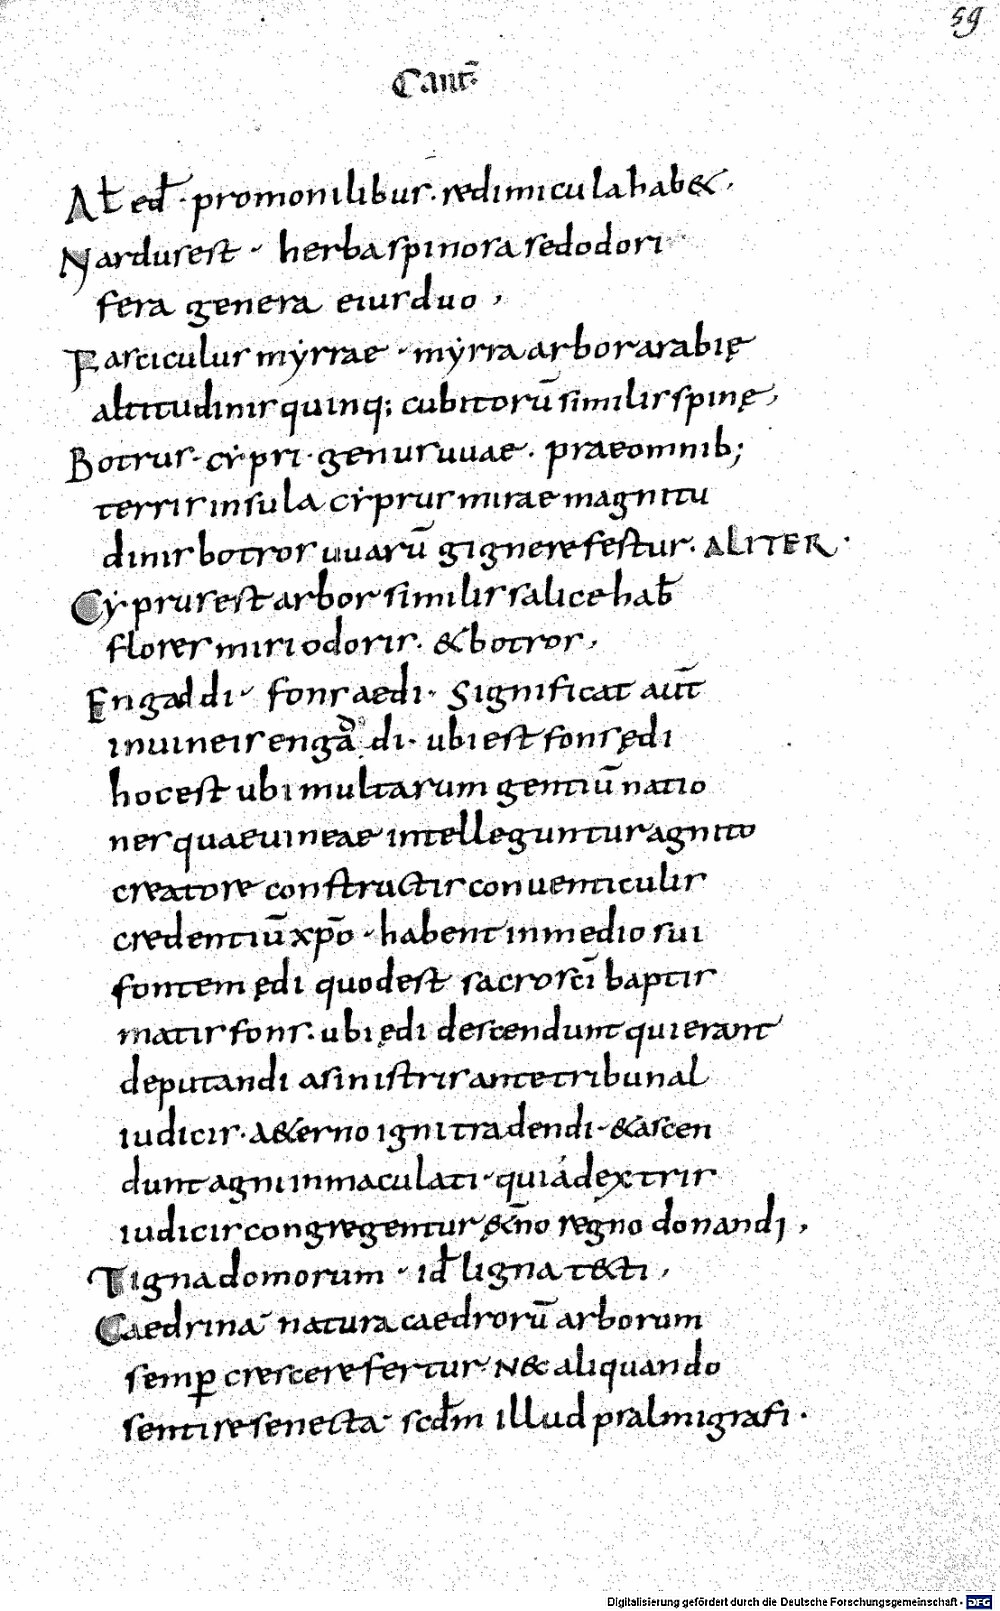 59
Cant̄
Al̄ ed̄ · pro monilibus · redimicula hab&,
Nardus est · herba spinosa sed odori
fera genera eius duo,
Fasciculus myrrae · myrra arbor arabię
altitudinis quinq; cubitorū similis spinę,
Botrus · cypri · genus uuae · prae omnib;
terris insula cyprus mirae magnitu
dinis botros uuarū gignere festur · ALITER ·
Cyprus est arbor similis salice hab̄
flores miri odoris · & botros,
Engaddi · fons aedi · significat aut̄
in uineis engaddi · ubi est fons ędi
hoc est ubi multarum gentiū natio
nes quae uineae intelleguntur agnito
creatore constructis conuenticulis
credentiū xp̄o · habent in medio sui
fontem ędi quod est sacrosc̄i baptis
matis fons · ubi ędi descendunt qui erant
deputandi a sinistris ante tribunal
iudicis · a&erno igni tradendi · & ascen
dunt agni inmaculati · qui á dextris
iudicis congregentur &̨no regno donandi,
Tigna domorum · id̄ ligna t&ti,
Caedrina · natura caedrorū arborum
semꝑ crescere fertur · N& aliquando
sentire senecta · scd̄m illud psalmigrafi ·
Digitalisierung gefördert durch die Deutsche Forschungsgemeinschaft - DFG